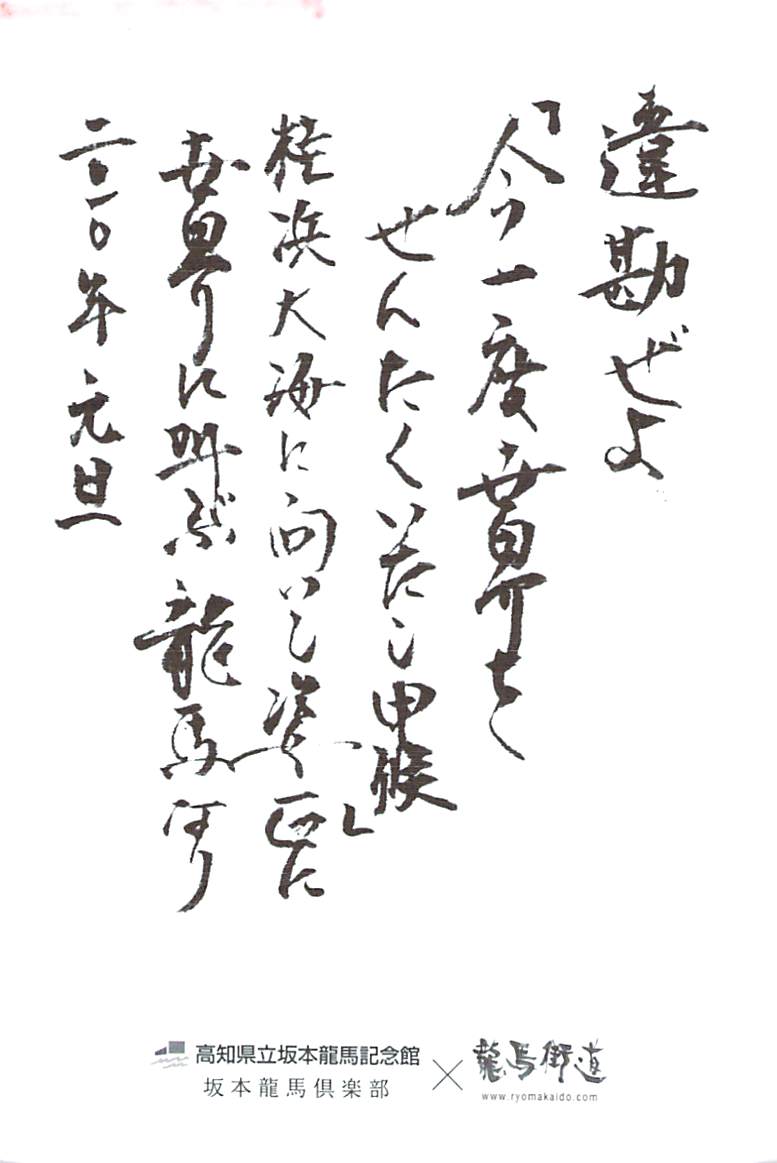 違勘ぜよ
「今一度世界を
せんたくいたし申候」
桂浜大海に向いし姿正に
世界に叫ぶ龍馬あり
二〇一〇年元旦
高知県立坂本龍馬記念館
坂本龍馬倶楽部
×
龍馬街道
www.ryomakaido.com